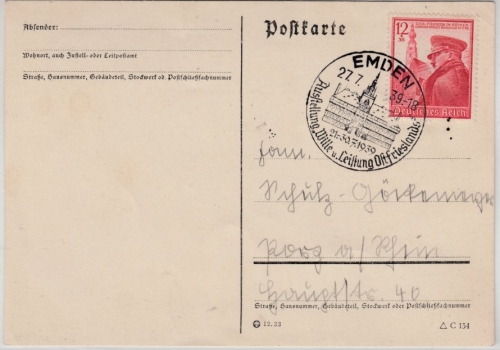 Absender:
Wohnort, auch Zustell- oder Leitpostamt
Straße, Hausnummer, Gebäudeteil, Stockwerk od. Postschließfachnummer
Postkarte
EMDEN
27.7. 39-18
Ausstellung „Wille u. Leistung Ostfrieslands“
21.-30.7.1939
12
Deutsches Reich
Schulz-Göckemeyer
Porz a/Rhein
Hauptstr. 40
Straße, Hausnummer, Gebäudeteil, Stockwerk oder Postschließfachnummer
12.38
C 154